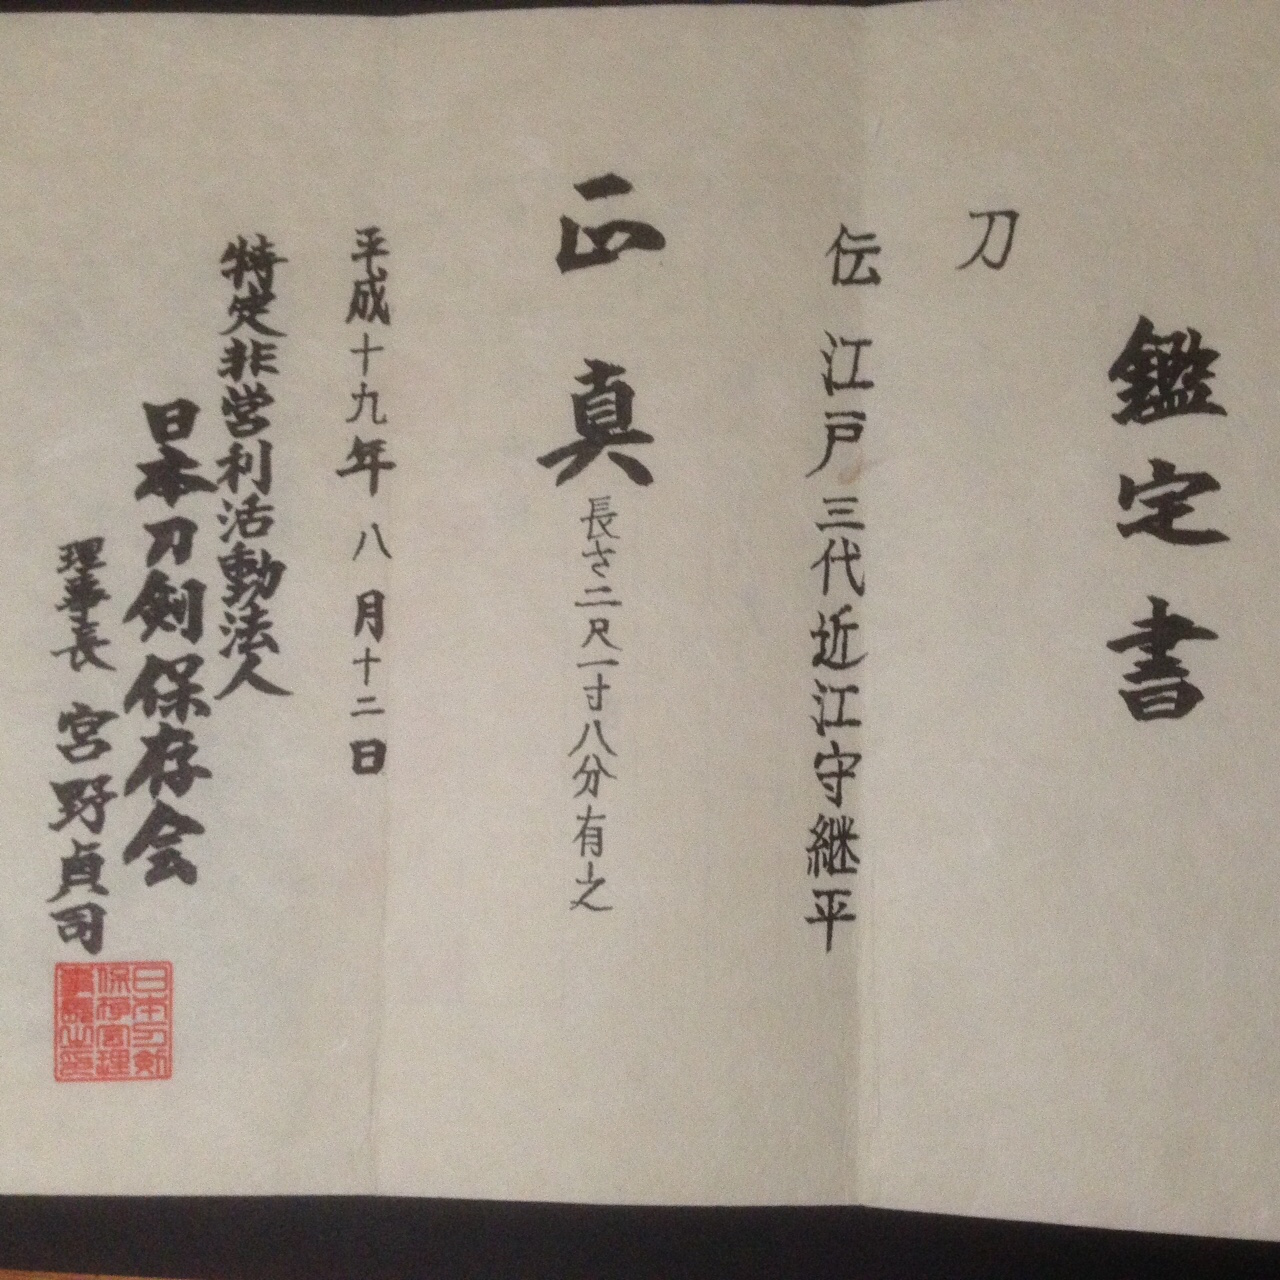 鑑定書
刀
伝 江戸三代近江守継平
正真
長さ二尺一寸八分有之
平成十九年八月十二日
特定非営利活動法人
日本刀剣保存会
理事長 宮野貞司
日本刀剣
保存会理
事長之印